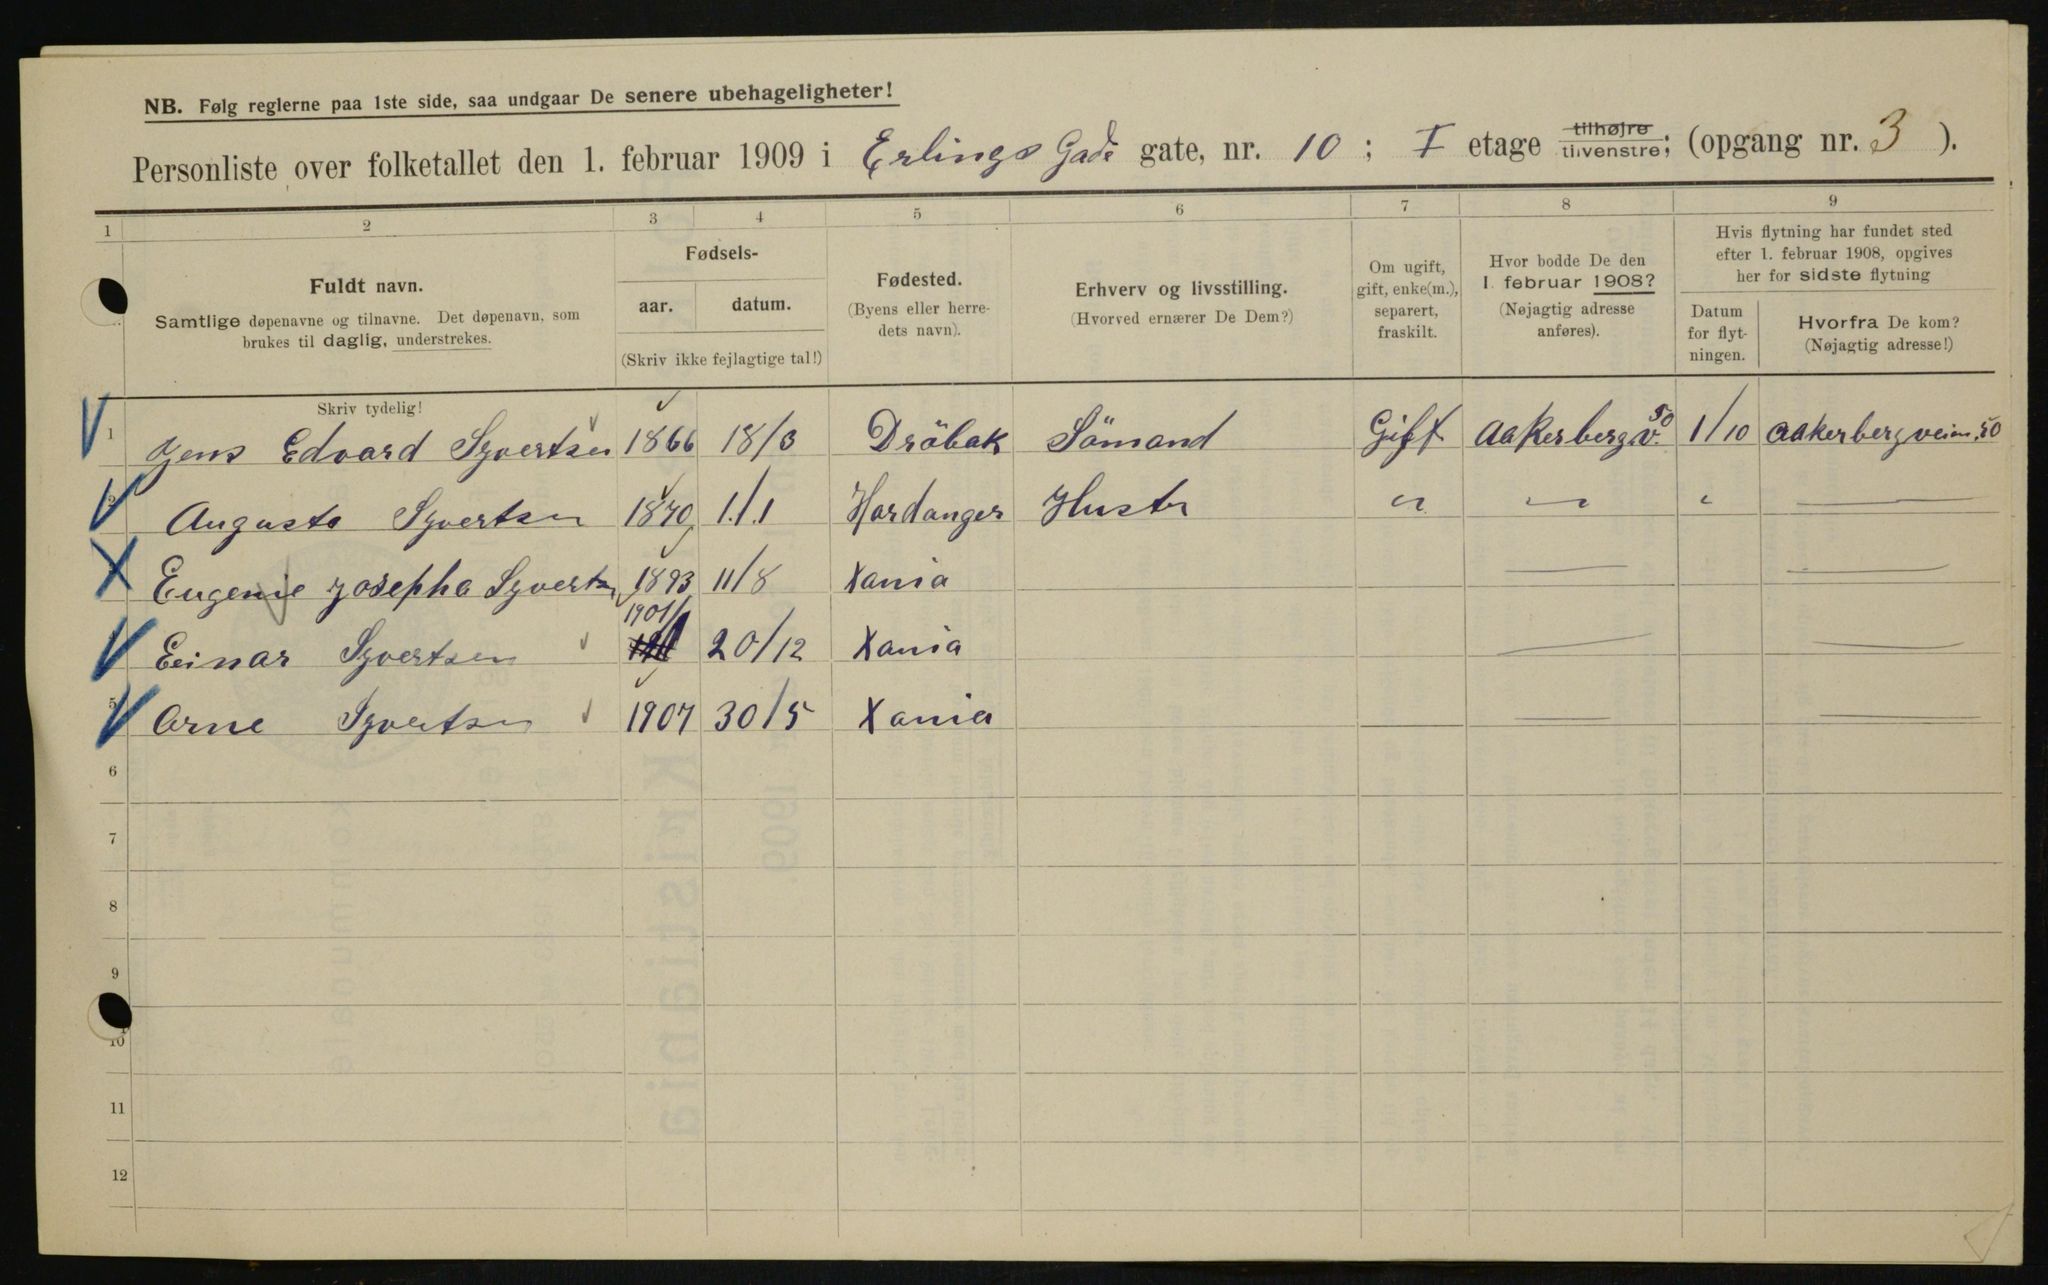 NB. Følg reglerne paa 1ste side, saa undgaar De senere ubehageligheter!
Personliste over folketallet den 1. februar 1909 i Erlings Gade gate, nr. 10 ; I etage tilhøjre tilvenstre; (opgang nr. 3 ).
1 2 3 4 5 6 7 8 9
Fuldt navn.
Samtlige døpenavne og tilnavne. Det døpenavn, som
brukes til daglig, understrekes.
Skriv tydelig!
Fødsels-
aar. datum.
(Skriv ikke fejlagtige tal!)
Fødested.
(Byens eller herre-
dets navn).
Erhverv og livsstilling.
(Hvorved ernærer De Dem?)
Om ugift,
gift, enke(m.),
separert,
fraskilt.
Hvor bodde De den
1. februar 1908?
(Nøjagtig adresse
anføres).
Hvis flytning har fundet sted
efter 1. februar 1908, opgives
her for sidste flytning
Datum
for flyt-
ningen.
Hvorfra De kom?
(Nøjagtig adresse!)
1 Jens Edvard Syvertsen 1866 18/3 Dröbak Sömand Gift Aakerbergv. 50 1/10 Aakerbergveien 50
2 Augusta Syvertsen 1870 1/1 Hardanger Hustr " " "
Eugenie Josepha Syvertsen 1893 11/8 Xania
Einar Syvertsen 1901 20/12 Xania
5 Arne Syvertsen 1907 30/5 Xania
6
7
8
9
10
11
12